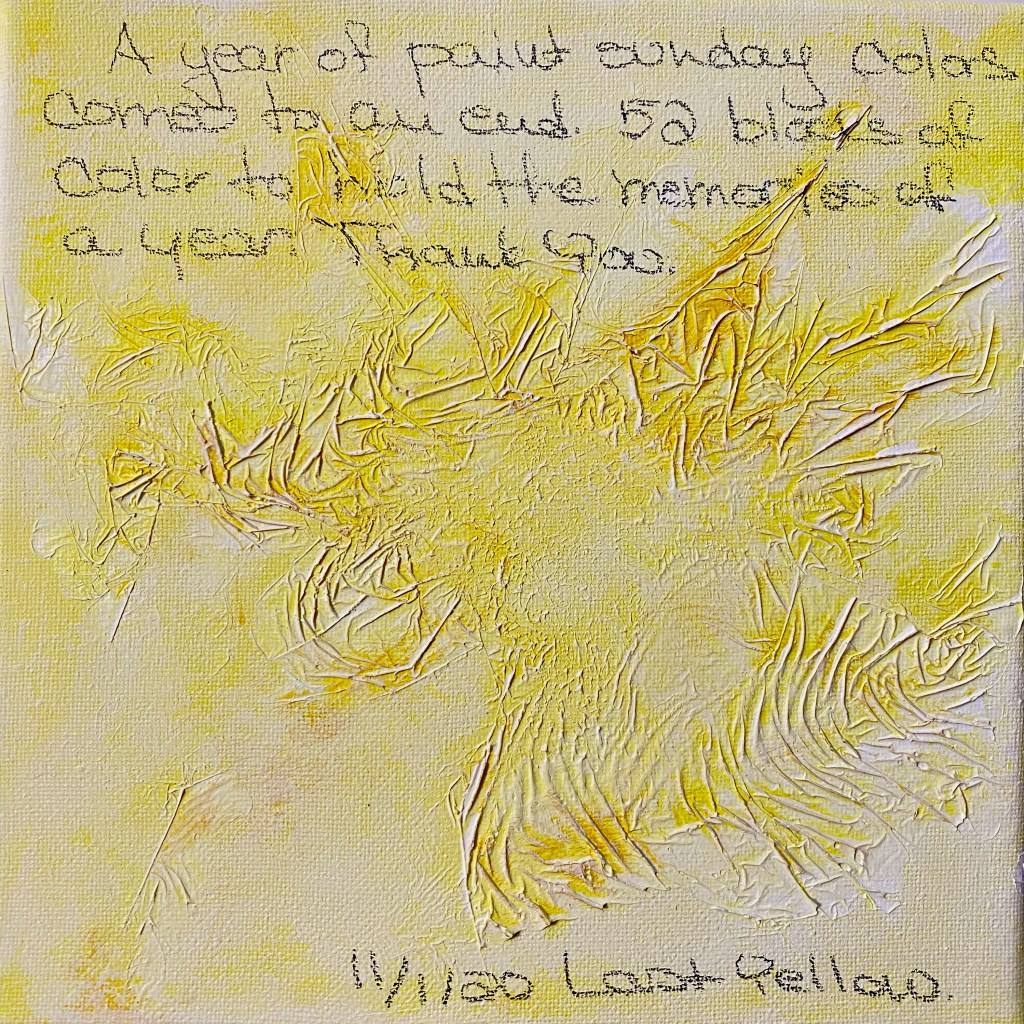 A year of paint sunday colors
comes to an end. 52 blocks of
color to hold the memories of
a year. Thank You.
11/1/20 Last Yellow.